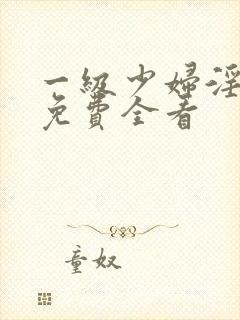 一級少婦淫
免費全看
童奴